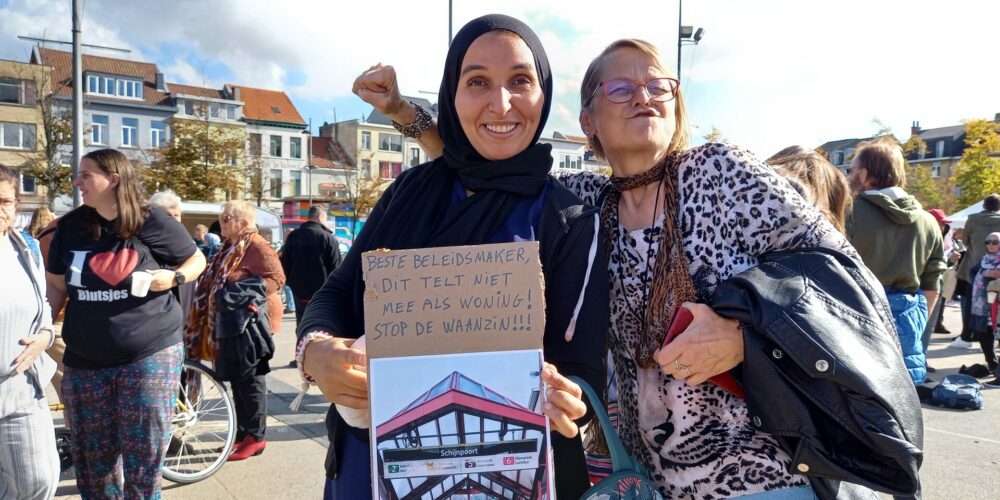 I ❤
Blutsjes
BESTE BELEIDSMAKER,
DIT TELT NIET
MEE ALS WONING!
STOP DE WAANZIN!!!
Schijnpoort
2
3
6